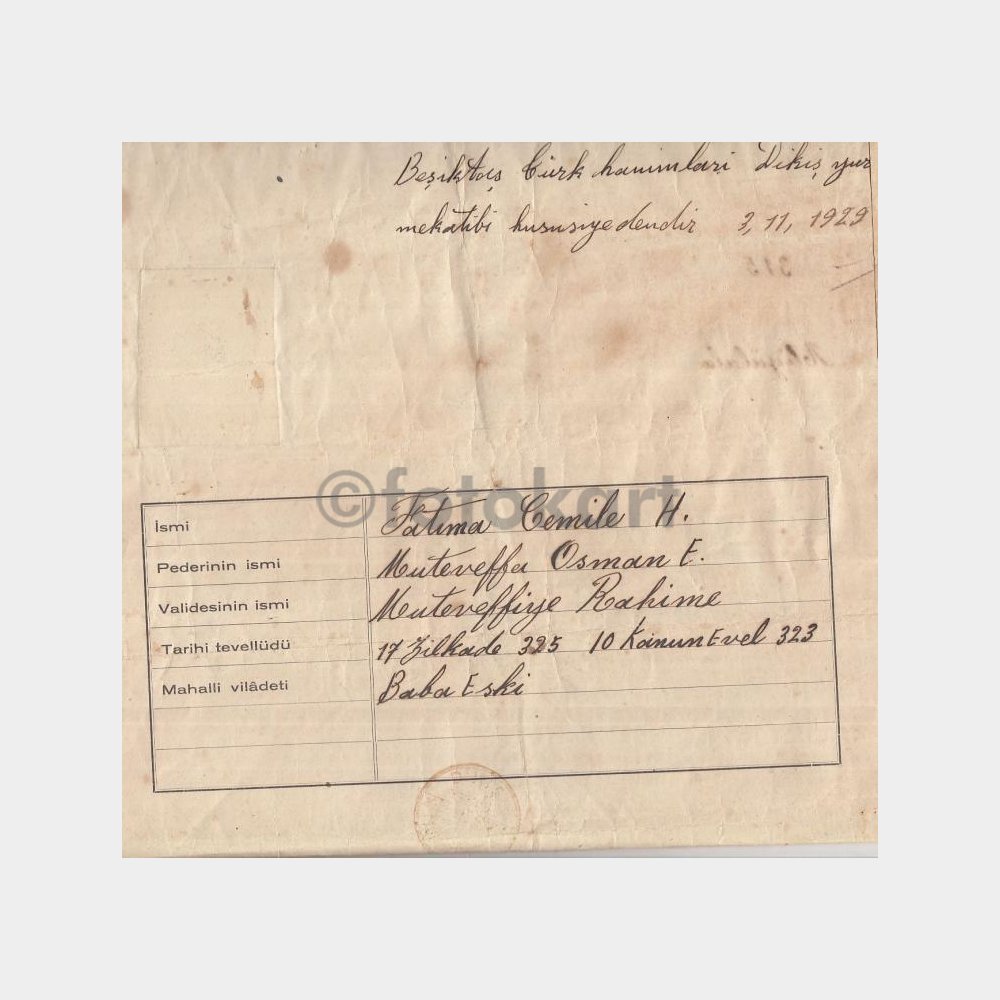 Beşiktaş Türk hanımları Dikiş yur
mekâtibi hususiyedendir 3, 11, 1929
315
©fotokart
İsmi Fatıma Cemile H.
Pederinin ismi Muteveffa Osman E.
Validesinin ismi Muteveffiye Rahime
Tarihi tevellüdü 17 Zilkade 325 10 Kânun Evel 323
Mahalli vilâdeti Baba Eski